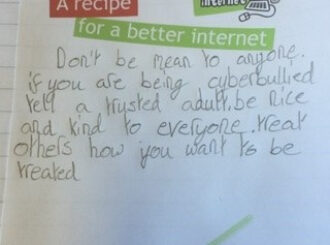 A recipe
internet
for a better internet
Don't be mean to anyone.
if you are being cyberbullied
tell a trusted adult. be nice
and kind to everyone. treat
others how you want to be
treated